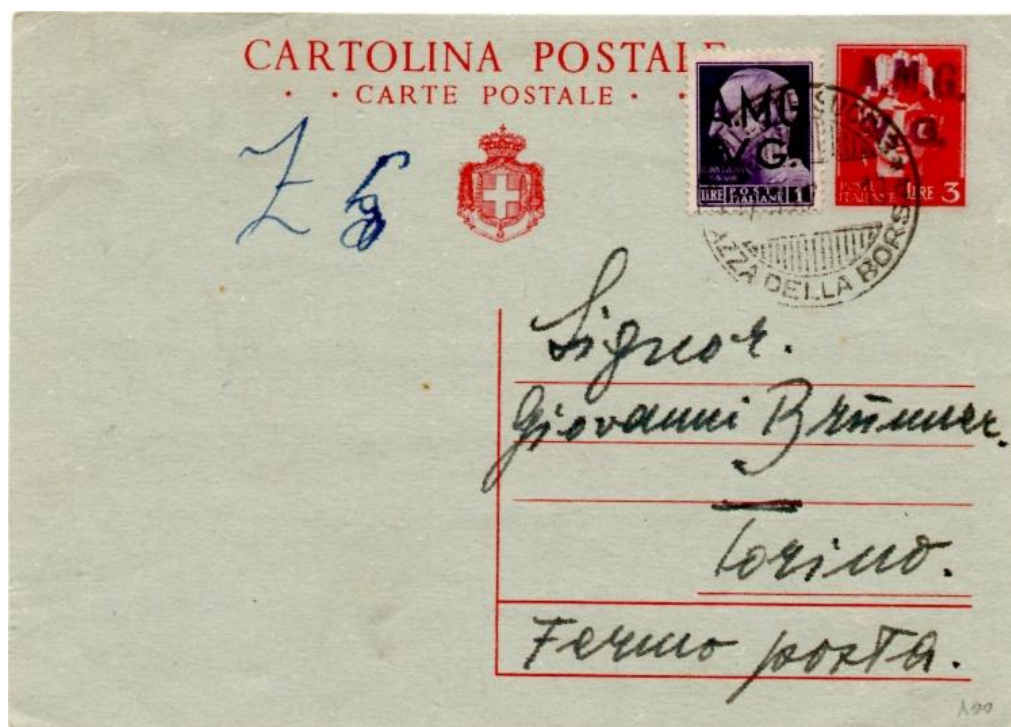 CARTOLINA POSTALE
· · CARTE POSTALE · ·
A.M.G.
V.G.
LIRE POSTE ITALIANE 1
A.M.G.
G.
POSTE ITALIANE LIRE 3
AZZA DELLA BORS
Signor.
Giovanni Brünner.
Torino.
Fermo posta.
100